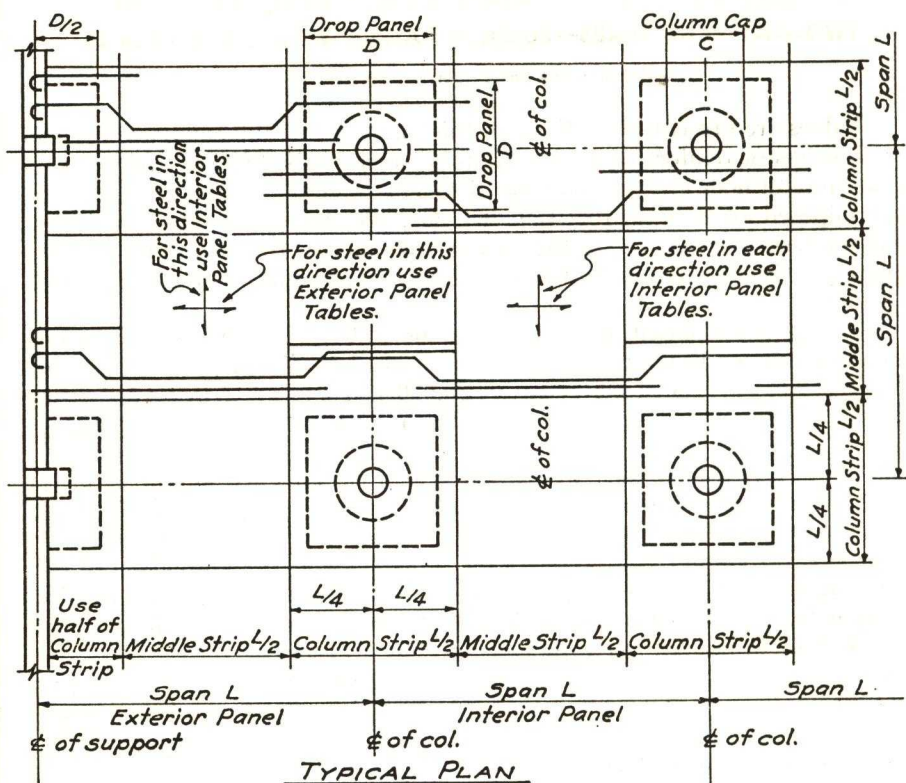 D/2
Drop Panel
D
Column Cap
C
Drop Panel
D
℄ of col.
Column Strip L/2
Span L
For steel in
this direction
use Interior
Panel Tables.
For steel in this
direction use
Exterior Panel
Tables.
For steel in each
direction use
Interior Panel
Tables.
Middle Strip L/2
Span L
℄ of col.
L/4
L/4
Column Strip L/2
L/4
L/4
Use
half of
Column
Strip
Middle Strip L/2
Column Strip L/2
Middle Strip L/2
Column Strip L/2
Span L
Span L
Span L
Exterior Panel
Interior Panel
℄ of support
℄ of col.
℄ of col.
TYPICAL PLAN